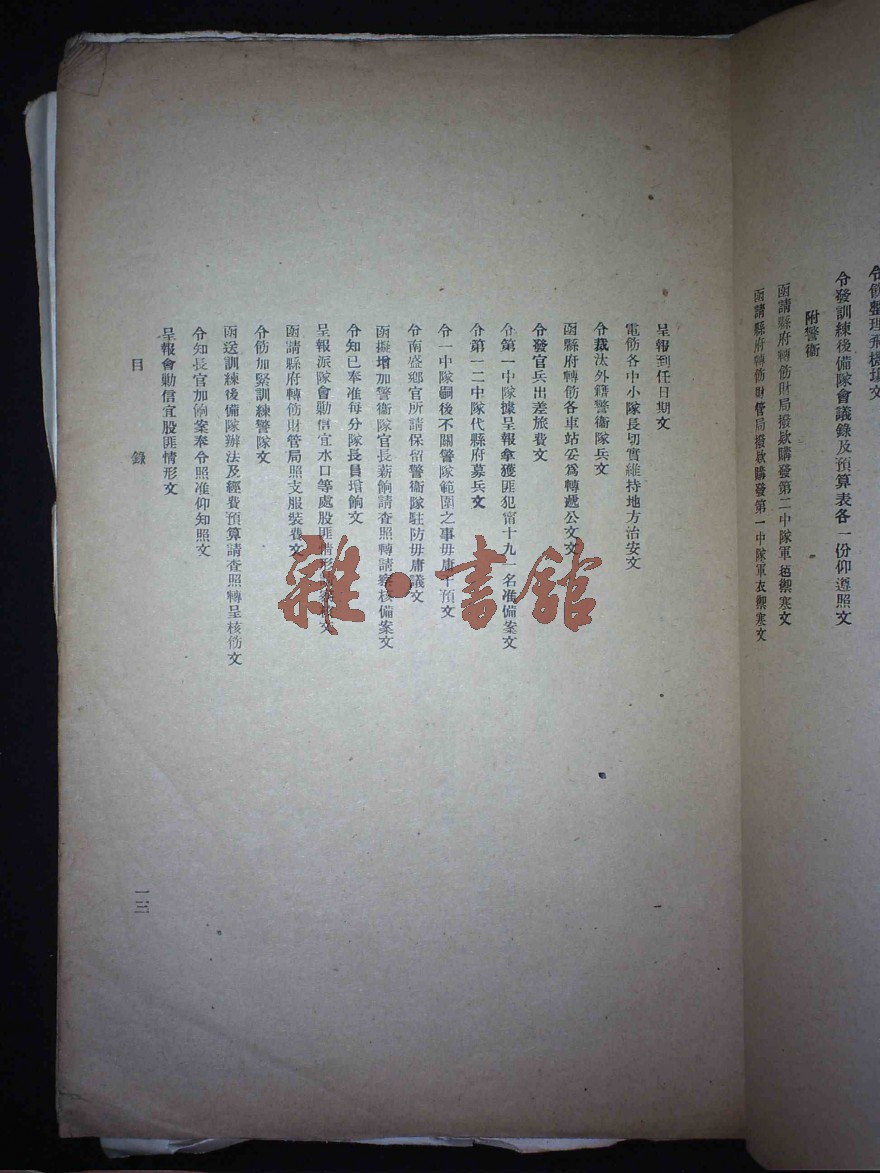 令發訓練後備隊會議錄及預算表各一份仰遵照文
附警衞
函請縣府轉飭財局撥欵購發第二中隊軍毡禦寒文
函請縣府轉飭財管局撥欵購發第一中隊軍衣禦寒文
呈報到任日期文
電飭各中小隊長切實維持地方治安文
令裁汰外籍警衞隊兵文
函縣府轉飭各車站妥爲轉遞公文文
令發官兵出差旅費文
令第一中隊據呈報拿獲匪犯甯十九一名准備案文
令第一二中隊代縣府募兵文
令一中隊嗣後不關警隊範圍之事毋庸干預文
令南盛鄉官所請保留警衞隊駐防毋庸議文
函擬增加警衞隊官長薪餉請查照轉請察核備案文
令知已奉准每分隊長員增餉文
呈報派隊會勦信宜水口等處股匪情形文
函請縣府轉飭財管局照支服裝費文
令飭加緊訓練警隊文
函送訓練後備隊辦法及經費預算請查照轉呈核飭文
令知長官加餉案奉令照准仰知照文
呈報會勦信宜股匪情形文
目錄
一三
雜·書館